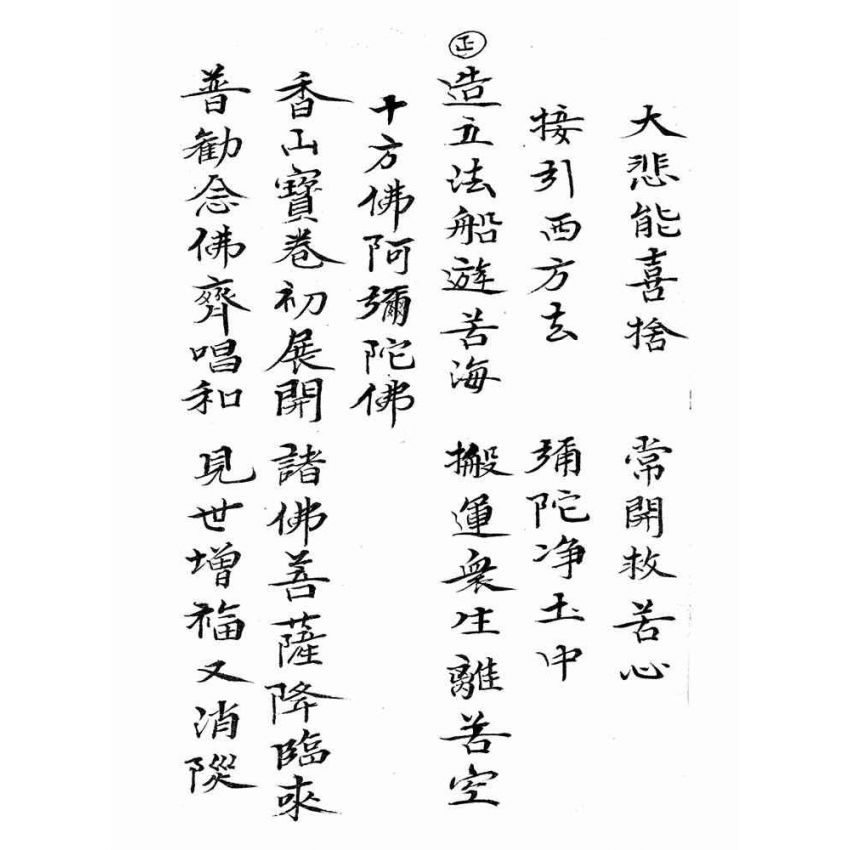 大悲能喜捨 常開救苦心
接引西方去 彌陀净土中
㊣造立法船遊苦海 搬運衆生離苦空
十方佛阿彌陀佛
香山寶卷初展開 諸佛菩薩降臨來
普勸念佛齊唱和 見世增福又消